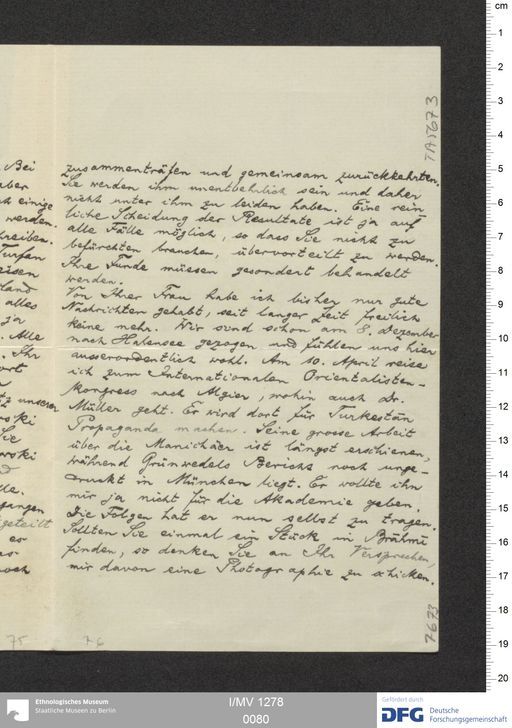 Bei
aber
einige
werden.
schreiben.
Turfan
eisen
land
alles
ja
. Alle
. Ihr
ort
unseren
Sie
lle.
gangen
geteilt
es
noch
75
zusammenträfen und gemeinsam zurückkehrten.
Sie werden ihm unentbehrlich sein und daher
nicht unter ihm zu leiden haben. Eine rein-
liche Scheidung der Resultate ist ja auf
alle Fälle möglich, so dass Sie nicht zu
befürchten brauchen, übervorteilt zu werden.
Ihre Funde müssen gesondert behandelt
werden.
Von Ihrer Frau habe ich bisher nur gute
Nachrichten gehabt, seit langer Zeit freilich
keine mehr. Wir sind schon am 8. Dezember
nach Halensee gezogen und fühlen uns hier
ausserordentlich wohl. Am 10. April reise
ich zum Internationalen Orientalisten-
Kongress nach Algier, wohin auch Dr.
Müller geht. Er wird dort für Turkestân
Propaganda machen. Seine grosse Arbeit
über die Manichäer ist längst erschienen,
während Grünwedels Bericht noch unge-
druckt in München liegt. Er wollte ihn
mir ja nicht für die Akademie geben.
Die Folgen hat er nun selbst zu tragen.
Sollten Sie einmal ein Stück in Brāhmī
finden, so denken Sie an Ihr Versprechen,
mir davon eine Photographie zu schicken.
76
TA 7673
7673
cm
1
2
3
4
5
6
7
8
9
10
11
12
13
14
15
16
17
18
19
20
Ethnologisches Museum
Staatliche Museen zu Berlin
I/MV 1278
0080
Gefördert durch
DFG
Deutsche
Forschungsgemeinschaft